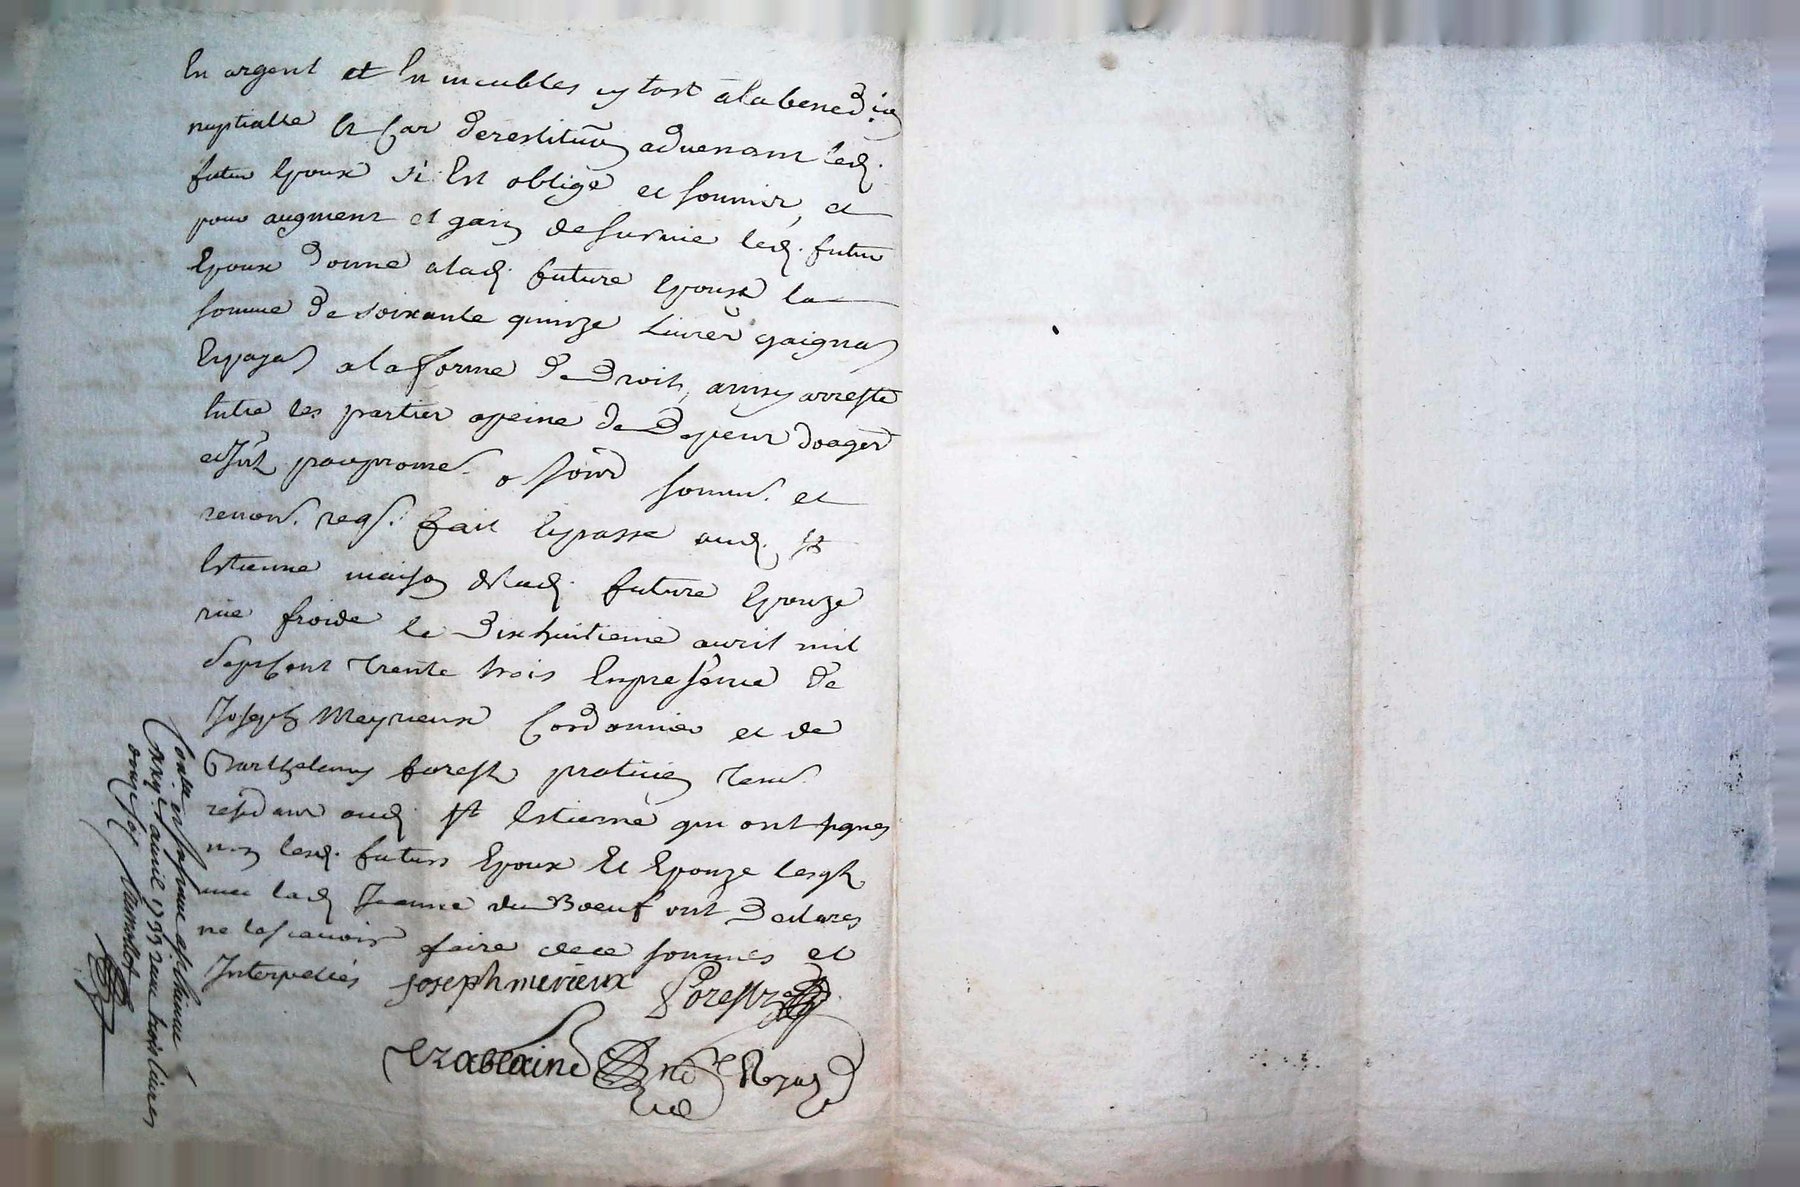 En argent et En meubles sytost a la bened.ion
nuptialle Et Cas de restitu~on advenant led.
futur Epoux s'i Est obligé et soumis, et
pour augment et gain de survie led. futur
Epoux donne a lad. future Epouse la
somme de soixante quinze Livres gaignas
Et payas a la forme de droit, ainsy arresté
Entre les parties a peine de depens
par prome. soum. et
renon. req. fait Et passé aud. St
Estienne maison de lad. future Epouze
rüe froide le dix huitieme avril mil
Sept Cent trente trois En presence de
Joseph Meyrieux Cordonnier et de
Barthelemy forest praticien
resid. aud. St Estienne qui ont signes
non lesd. futurs Epoux Et Epouze
avec lad. Jeanne du Boeuf ont declares
ne le scavoir faire de ce sommés et
Interpellés joseph merieux Forest
Royal
Contrôllé Et Insinué a St Estienne
avril 1733 reçu trois livres